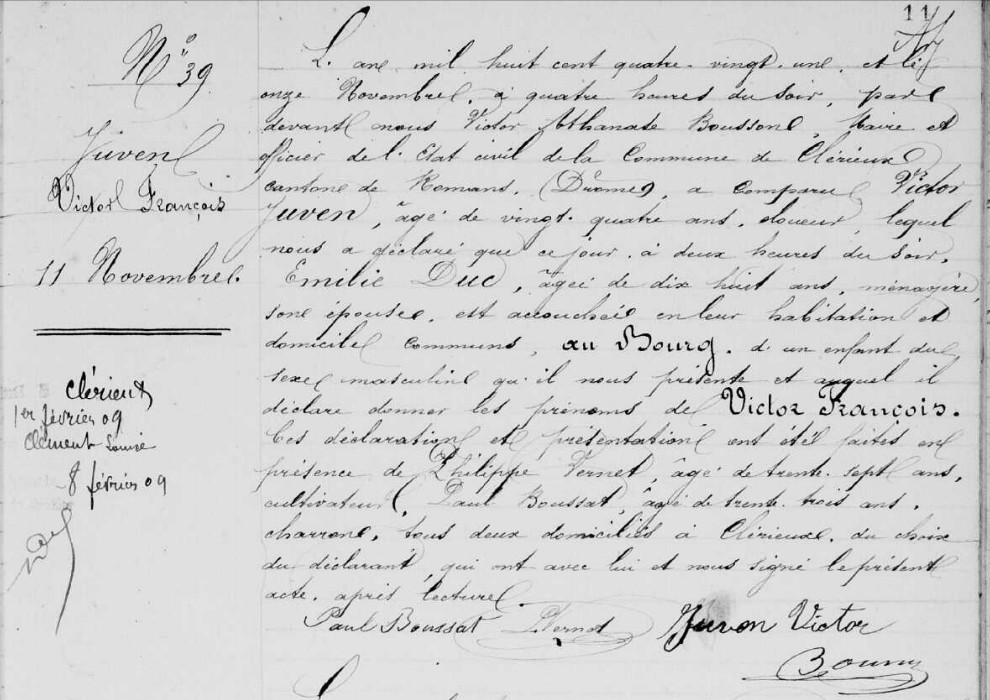 11
N° 39
Juven
Victor François
11 Novembre.
Clérieux
1er février 09
Clément Louise
8 février 09
L'an mil huit cent quatre-vingt-un et le
onze Novembre, à quatre heures du soir, par
devant nous Victor Athanase Bousson, Maire et
officier de l'Etat civil de la Commune de Clérieux
canton de Romans, (Drôme), a comparu Victor
Juven, âgé de vingt-quatre ans, lequel
nous a déclaré que ce jour, à deux heures du soir,
Emilie Duc, âgée de dix huit ans, ménagère,
son épouse, est accouchée en leur habitation et
domicile communs, au Bourg, d'un enfant du
sexe masculin qu'il nous présente et auquel il
déclare donner les prénoms de Victor François.
Ces déclaration et présentation ont été faites en
présence de Philippe Vernet, âgé de trente-sept ans,
cultivateur, Paul Boussat, âgé de trente-trois ans,
charron, tous deux domiciliés à Clérieux, du choix
du déclarant, qui ont avec lui et nous signé le présent
acte, après lecture.
Paul Boussat Vernet Juven Victor